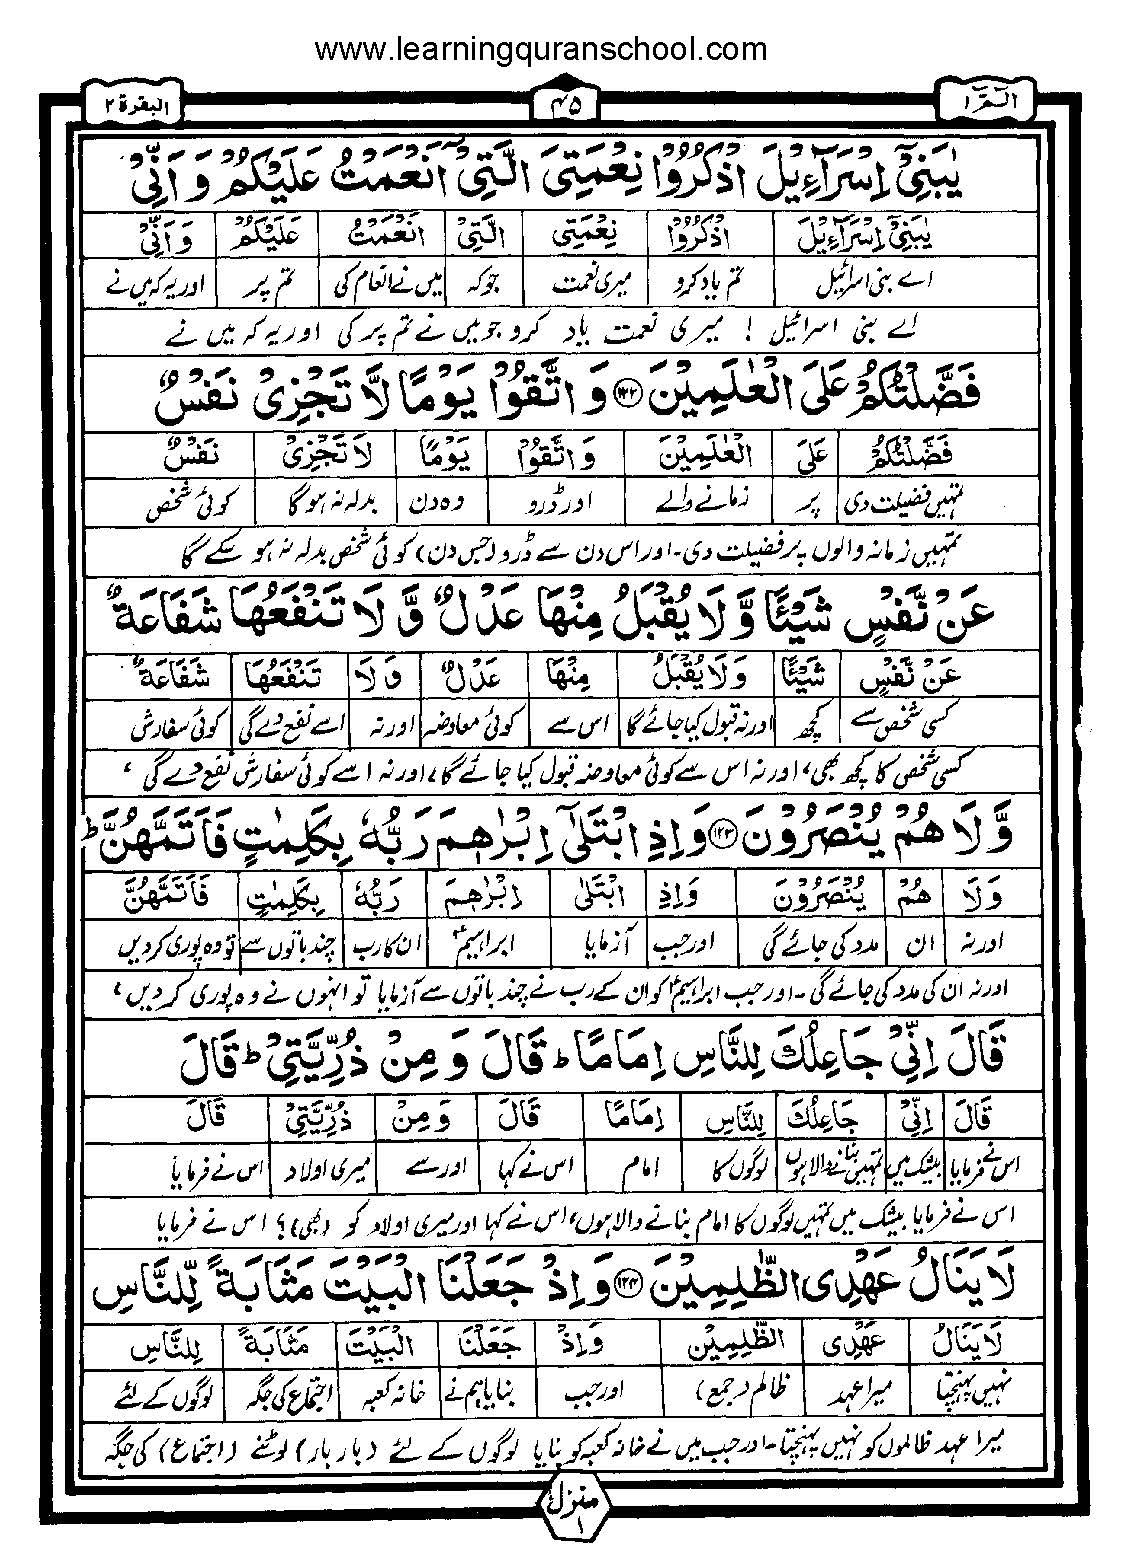 www.learningquranschool.com
الٓمّٓ ١
٤٥
البقرة ٢
يٰبَنِىْٓ اِسْرَآءِيْلَ اذْكُرُوْا نِعْمَتِىَ الَّتِىْٓ اَنْعَمْتُ عَلَيْكُمْ وَ اَنِّىْ
يٰبَنِىْٓ اِسْرَآءِيْلَ اذْكُرُوْا نِعْمَتِىَ الَّتِىْٓ اَنْعَمْتُ عَلَيْكُمْ وَ اَنِّىْ
اے بنی اسرائیل تم یاد کرو میری نعمت جو کہ میں نے انعام کی تم پر اور یہ کہ میں نے
اے بنی اسرائیل ! میری نعمت یاد کرو جو میں نے تم پر کی اور یہ کہ میں نے
فَضَّلْتُكُمْ عَلَى الْعٰلَمِيْنَ ۝١٢٢ وَ اتَّقُوْا يَوْمًا لَّا تَجْزِىْ نَفْسٌ
فَضَّلْتُكُمْ عَلَى الْعٰلَمِيْنَ وَ اتَّقُوْا يَوْمًا لَا تَجْزِىْ نَفْسٌ
تمہیں فضیلت دی پر زمانے والے اور ڈرو وہ دن بدلہ نہ ہوگا کوئی شخص
تمہیں زمانہ والوں پر فضیلت دی۔ اور اس دن سے ڈرو (جس دن) کوئی شخص بدلہ نہ ہو سکے گا
عَنْ نَّفْسٍ شَيْئًا وَّ لَا يُقْبَلُ مِنْهَا عَدْلٌ وَّ لَا تَنْفَعُهَا شَفَاعَةٌ
عَنْ نَّفْسٍ شَيْئًا وَ لَا يُقْبَلُ مِنْهَا عَدْلٌ وَ لَا تَنْفَعُهَا شَفَاعَةٌ
کسی شخص سے کچھ اور نہ قبول کیا جائے گا اس سے کوئی معاوضہ اور نہ اسے نفع دے گی کوئی سفارش
کسی شخص کا کچھ بھی، اور نہ اس سے کوئی معاوضہ قبول کیا جائے گا، اور نہ اسے کوئی سفارش نفع دے گی،
وَّ لَا هُمْ يُنْصَرُوْنَ ۝١٢٣ وَ اِذِ ابْتَلٰٓى اِبْرٰهٖمَ رَبُّهٗ بِكَلِمٰتٍ فَاَتَمَّهُنَّ ؕ
وَ لَا هُمْ يُنْصَرُوْنَ وَ اِذِ ابْتَلٰى اِبْرٰهٖمَ رَبُّهٗ بِكَلِمٰتٍ فَاَتَمَّهُنَّ
اور نہ ان مدد کی جائے گی اور جب آزمایا ابراہیمؑ ان کا رب چند باتوں سے تو وہ پوری کردیں
اور نہ ان کی مدد کی جائے گی۔ اور جب ابراہیمؑ کو ان کے رب نے چند باتوں سے آزمایا تو انہوں نے وہ پوری کر دیں،
قَالَ اِنِّىْ جَاعِلُكَ لِلنَّاسِ اِمَامًا ؕ قَالَ وَ مِنْ ذُرِّيَّتِىْ ؕ قَالَ
قَالَ اِنِّىْ جَاعِلُكَ لِلنَّاسِ اِمَامًا قَالَ وَ مِنْ ذُرِّيَّتِىْ قَالَ
اس نے فرمایا بیشک میں تمہیں بنانے والا ہوں لوگوں کا امام اس نے کہا اور سے میری اولاد اس نے فرمایا
اس نے فرمایا بیشک میں تمہیں لوگوں کا امام بنانے والا ہوں، اس نے کہا اور میری اولاد کو (بھی)؟ اس نے فرمایا
لَا يَنَالُ عَهْدِى الظّٰلِمِيْنَ ۝١٢٤ وَ اِذْ جَعَلْنَا الْبَيْتَ مَثَابَةً لِّلنَّاسِ
لَا يَنَالُ عَهْدِى الظّٰلِمِيْنَ وَ اِذْ جَعَلْنَا الْبَيْتَ مَثَابَةً لِلنَّاسِ
نہیں پہنچتا میرا عہد ظالم (جمع) اور جب بنایا ہم نے خانہ کعبہ اجتماع کی جگہ لوگوں کے لئے
میرا عہد ظالموں کو نہیں پہنچتا۔ اور جب میں نے خانہ کعبہ کو بنایا لوگوں کے لئے (بار بار) لوٹنے (اجتماع) کی جگہ
منزل ١